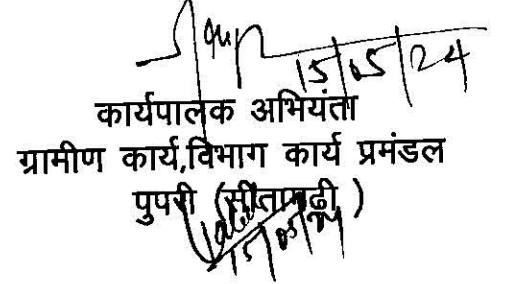 15/05/24
कार्यपालक अभियंता
ग्रामीण कार्य,विभाग कार्य प्रमंडल
पुपरी (सीतामढ़ी )
15/05/24